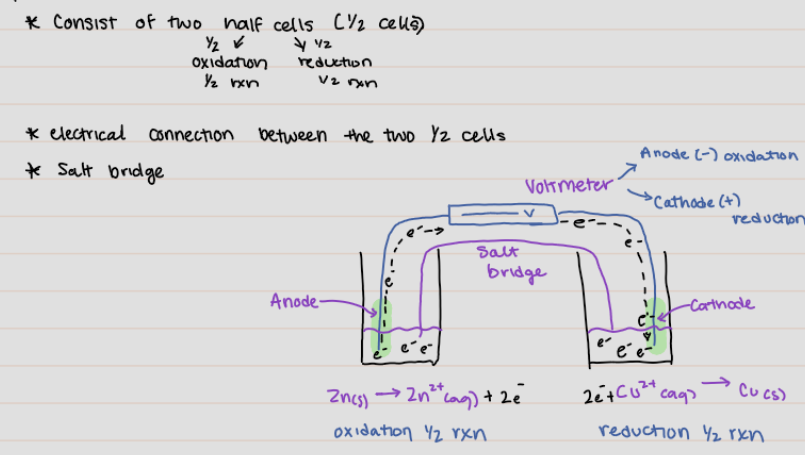 * Consist of two half cells (1/2 cells)
1/2 1/2
oxidation reduction
1/2 rxn 1/2 rxn
* electrical connection between the two 1/2 cells
* Salt bridge
Anode (-) oxidation
Voltmeter
Cathode (+)
reduction
V
e⁻ e⁻
e⁻
Salt
bridge
e⁻
Anode
Cathode
e⁻
e⁻ e⁻ e⁻
e⁻ e⁻ e⁻
Zn(s) → Zn²⁺(aq) + 2e⁻
2e⁻ + Cu²⁺(aq) → Cu(s)
oxidation 1/2 rxn
reduction 1/2 rxn